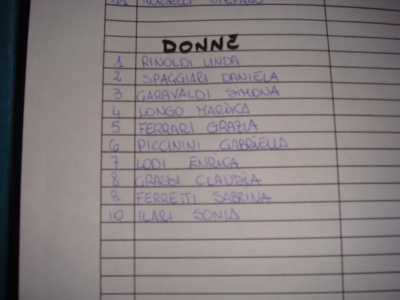 DONNE
1 RINOLDI LINDA
2 SPAGGIARI DANIELA
3 GARAVALDI SIMONA
4 LONGO MARIKA
5 FERRARI GRAZIA
6 PICCININI GABRIELLA
7 LODI ENRICA
8 GRASSI CLAUDIA
9 FERRETTI SABRINA
10 ILARI SONIA